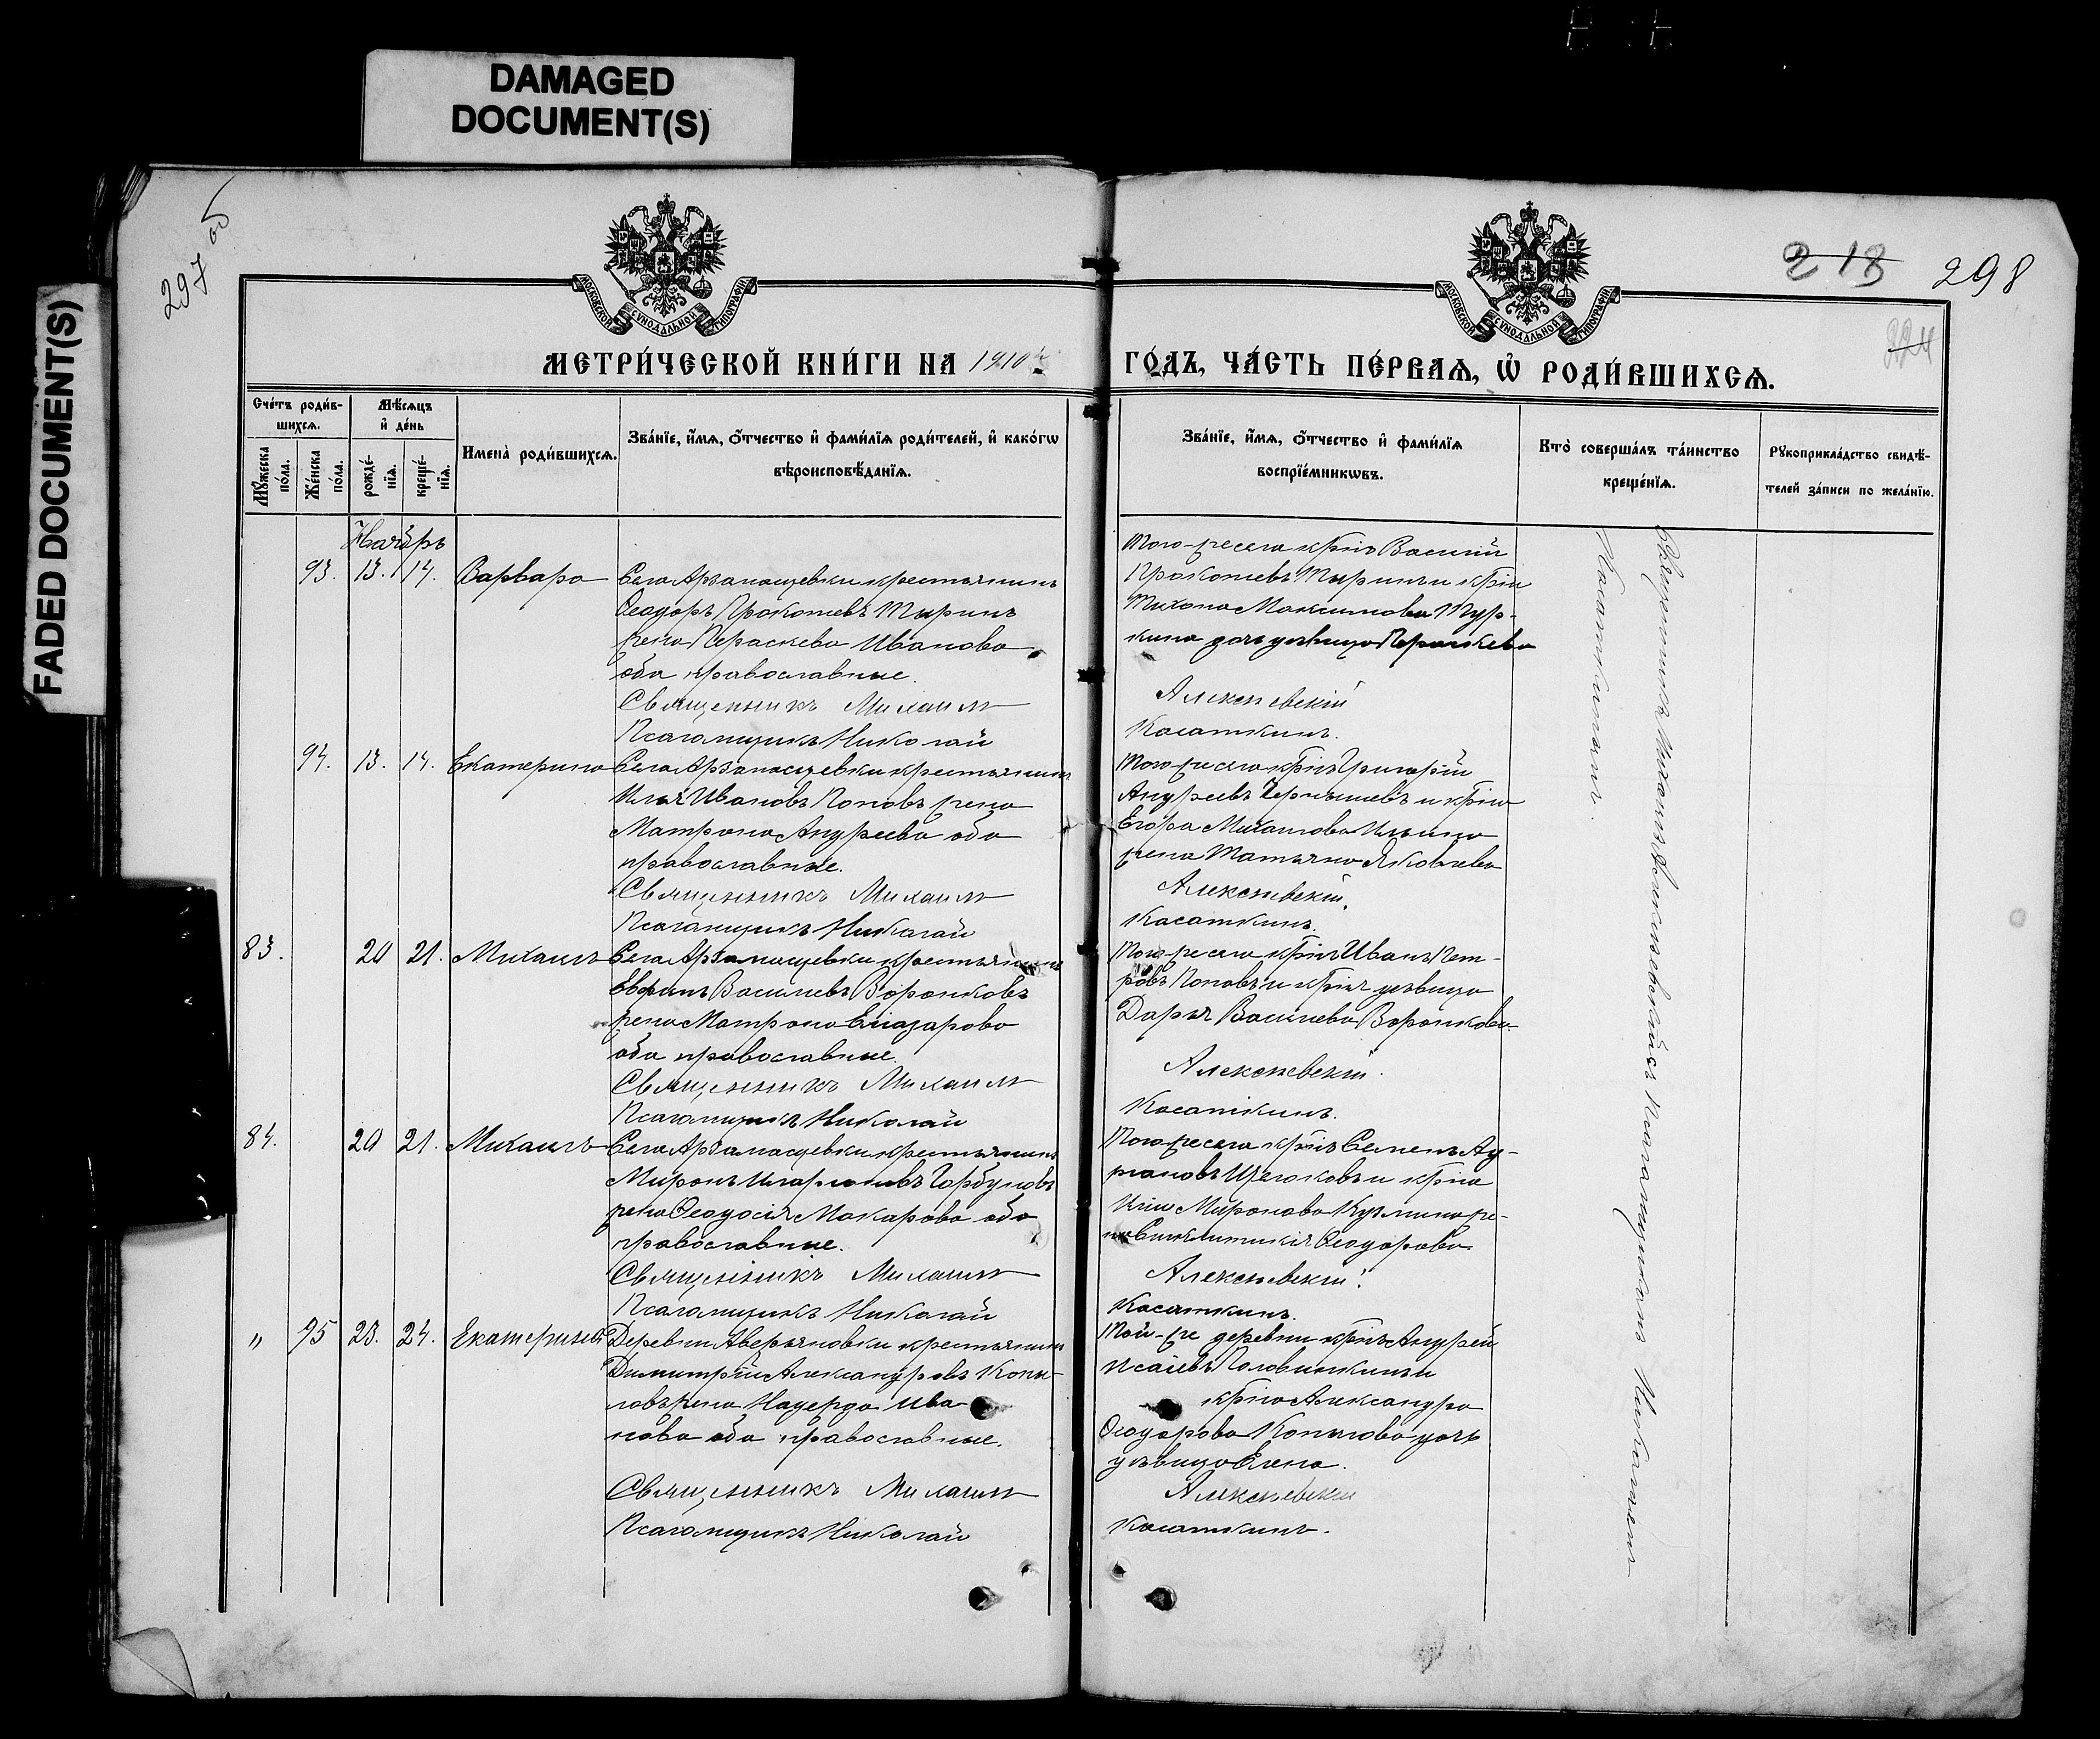 DAMAGED
DOCUMENT(S)
FADED DOCUMENT(S)
297 об
213 298
224
МОСКОВСКОЙ СѴНОДАЛЬНОЙ ТИПОГРАФІИ
МОСКОВСКОЙ СѴНОДАЛЬНОЙ ТИПОГРАФІИ
МЕТРИ́ЧЕСКОЙ КНИ́ГИ НА 1910
ГО́ДЪ, ЧА́СТЬ ПЕ́РВАѦ, Ѡ҆ РОДИ́ВШИХСѦ.
Сче́тъ роди́в-
шихсѧ.
Мꙋ́жеска
по́ла.
Же́нска
по́ла.
Мѣ́сѧцъ
и҆ де́нь
рожде́-
нїѧ.
креще́-
нїѧ.
Имена̀ роди́вшихсѧ.
Зва́нїе, и҆́мѧ, ѻ҆́тчество и҆ фами́лїѧ роди́телей, и҆ како́гѡ
вѣроисповѣ́данїѧ.
Зва́нїе, и҆́мѧ, ѻ҆́тчество и҆ фами́лїѧ
воспрїе́мникѡвъ.
Кто̀ соверша́лъ та́инство
креще́нїѧ.
Рꙋкоприкла́дство свидѣ́-
телей за́писи по жела́нїю.
Ноябрь
93. 13. 14. Варвара
Села Арзамасцевки крестьянинъ
Ѳеодоръ Прокопіевъ Тыринъ
жена Параскева Иванова
оба православные.
Священникъ Михаилъ
Псаломщикъ Николай
Того-же села кр҃нъ Василій
Прокопіевъ Тыринъ и кр҃на
Тихона Максимова Тур-
кина дочь дѣвица Параскева
Алексѣевскій
Касаткинъ.
94. 13. 14. Екатерина
Села Арзамасцевки крестьянинъ
Илья Ивановъ Поповъ жена
Матрона Андреева оба
православные.
Священникъ Михаилъ
Псаломщикъ Николай
Того-же села кр҃нъ Григорій
Андреевъ Чернышевъ и кр҃на
Егора Михаилова Ильина
жена Татьяна Яковлева
Алексѣевскій.
Касаткинъ.
83. 20 21. Михаилъ
Села Арзамасцевки крестьянинъ
Василіевъ Воронковъ
жена Матрона Елазарова
оба православные.
Священникъ Михаилъ
Псаломщикъ Николай
Того-же села кр҃нъ Иванъ Пет-
ровъ Поповъ и кр҃ка дѣвица
Дарья Василіева Воронкова.
Алексѣевскій.
Касаткинъ.
84. 20 21. Михаилъ
Села Арзамасцевки крестьянинъ
Миронъ Иларіоновъ Горбуновъ
жена Ѳеодосія Макарова оба
православные.
Священникъ Михаилъ
Псаломщикъ Николай
Того-же села кр҃нъ Семенъ Ад-
риановъ Щегольковъ и кр҃на
Миронова Кузмина же-
на Синклитикія Ѳеодорова
Алексѣевскій.
Касаткинъ.
" 95 23. 24. Екатерина
Деревни Аверьяновки крестьянинъ
Димитрій Александровъ Копы-
ловъ жена Надежда Ива-
нова оба православные.
Священникъ Михаилъ
Псаломщикъ Николай
Той-же деревни кр҃нъ Андрей
Исаіевъ Половинкинъ и
кр҃на Александра
Ѳеодорова Копылова дочь
дѣвица Елена.
Алексѣевскій
Касаткинъ.
Священникъ Михаилъ Алексѣевскій съ псаломщикомъ Николаемъ
Касаткинымъ.